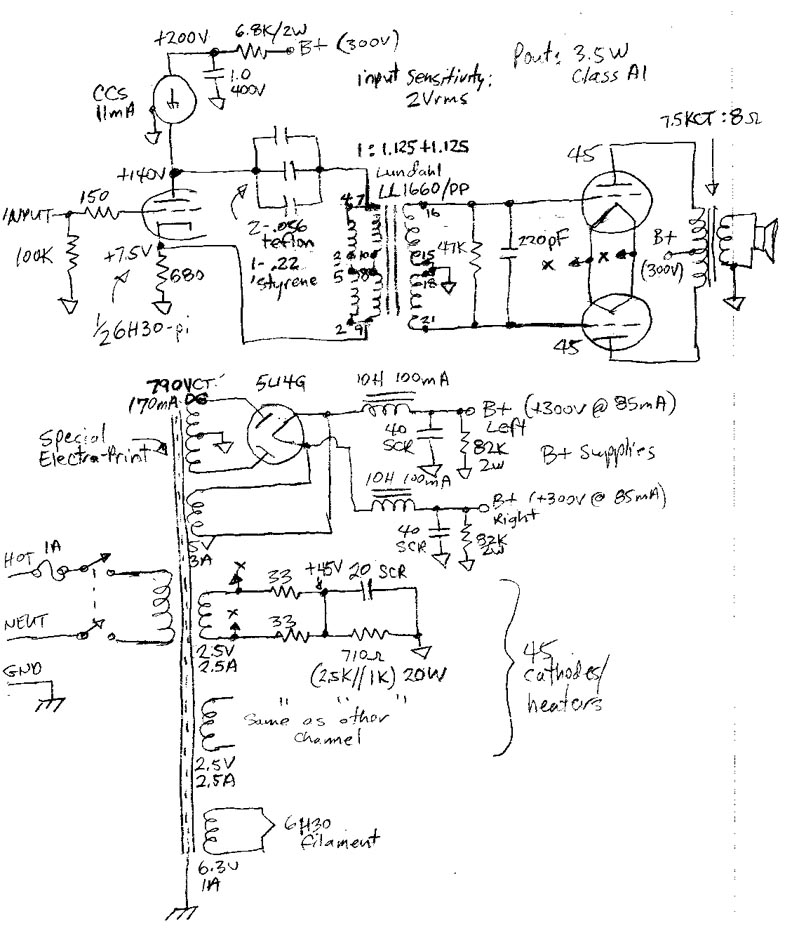 +200V
6.8K/2W
B+ (300V)
1.0
400V
CCS
11mA
input sensitivity:
2Vrms
Pout: 3.5W
Class A1
7.5KCT : 8Ω
1 : 1.125 + 1.125
Lundahl
LL1660/PP
45
+140V
INPUT
150
100K
+7.5V
680
1/2 6H30-pi
2-.056
teflon
1-.22
styrene
4
7
2
10
5
8
2
9
16
15
18
21
47K
220pF
x
x
B+
(300V)
45
790VCT
170mA DC
5U4G
10H 100mA
B+ (+300V @ 85mA)
Left
40
SCR
82K
2W
B+ Supplies
Special
Electra-Print
10H 100mA
B+ (+300V @ 85mA)
Right
40
SCR
82K
2W
5V
3A
HOT
1A
NEUT
GND
x
33
+45V
20 SCR
x
33
2.5V
2.5A
710Ω
(2.5K//1K) 20W
45
cathodes/
heaters
" " "
Same as other
channel
2.5V
2.5A
6H30
filament
6.3V
1A